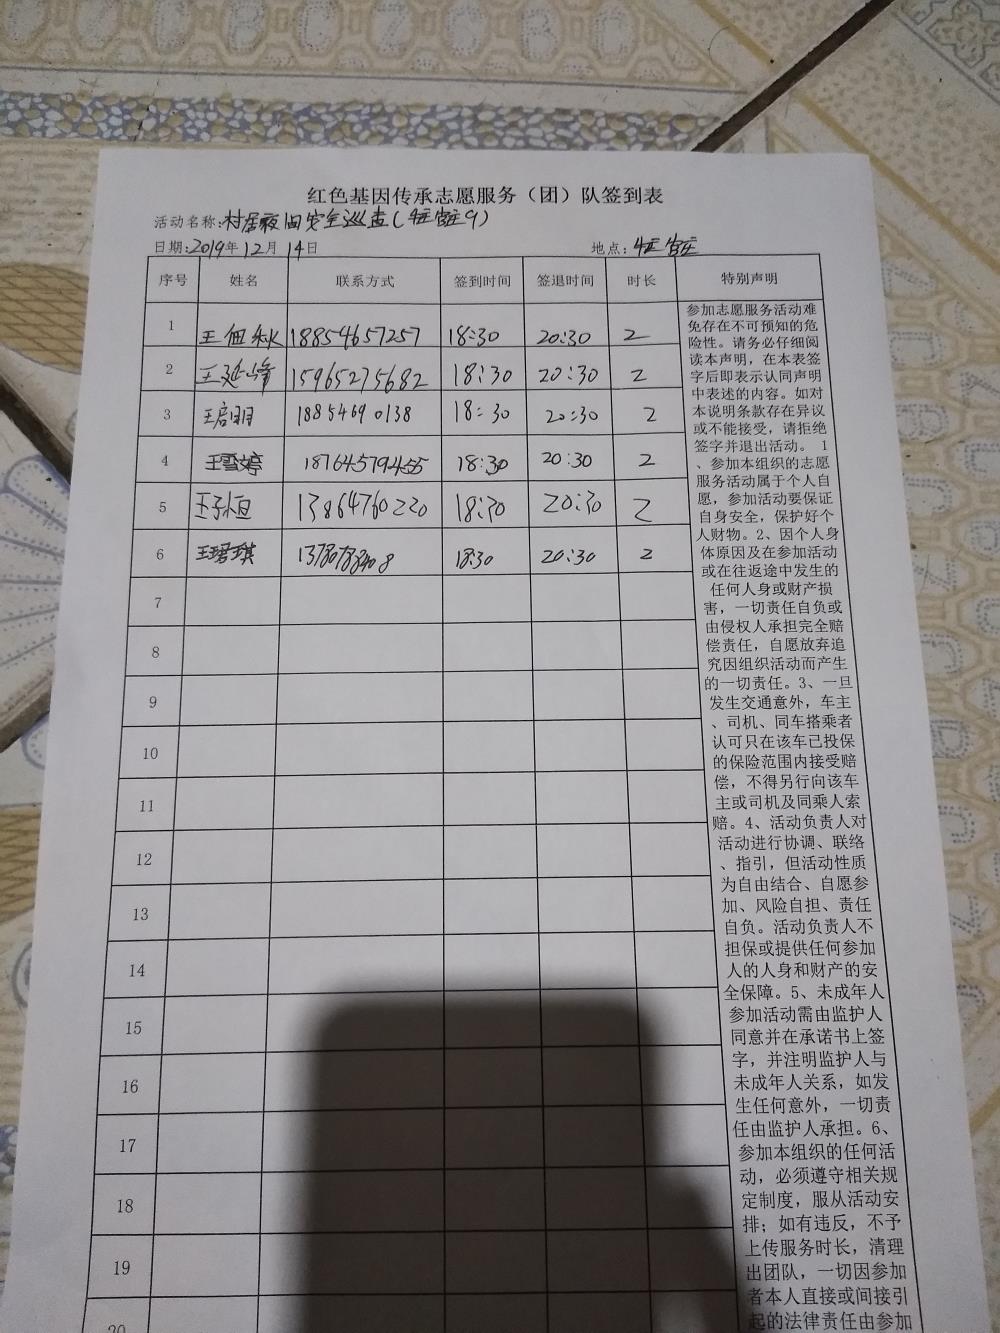 红色基因传承志愿服务（团）队签到表
活动名称:村居夜间安全巡查(
日期:2019年12月14日 地点:
序号 姓名 联系方式 签到时间 签退时间 时长 特别声明
1 王 18854657257 18:30 20:30 2
2 王延峰 15965275682 18:30 20:30 2
3 王启明 1885469 0138 18:30 20:30 2
4 王雪婷 18764579455 18:30 20:30 2
5 王子恒 13864760220 18:30 20:30 2
6 王珺琪 18:30 20:30 2
7
8
9
10
11
12
13
14
15
16
17
18
19
20
参加志愿服务活动难
免存在不可预知的危
险性。请务必仔细阅
读本声明，在本表签
字后即表示认同声明
中表述的内容。如对
本说明条款存在异议
或不能接受，请拒绝
签字并退出活动。 1
、参加本组织的志愿
服务活动属于个人自
愿，参加活动要保证
自身安全，保护好个
人财物。2、因个人身
体原因及在参加活动
或在往返途中发生的
任何人身或财产损
害，一切责任自负或
由侵权人承担完全赔
偿责任，自愿放弃追
究因组织活动而产生
的一切责任。3、一旦
发生交通意外，车主
、司机、同车搭乘者
认可只在该车已投保
的保险范围内接受赔
偿，不得另行向该车
主或司机及同乘人索
赔。4、活动负责人对
活动进行协调、联络
、指引，但活动性质
为自由结合、自愿参
加、风险自担、责任
自负。活动负责人不
担保或提供任何参加
人的人身和财产的安
全保障。5、未成年人
参加活动需由监护人
同意并在承诺书上签
字，并注明监护人与
未成年人关系，如发
生任何意外，一切责
任由监护人承担。6、
参加本组织的任何活
动，必须遵守相关规
定制度，服从活动安
排；如有违反，不予
上传服务时长，清理
出团队，一切因参加
者本人直接或间接引
起的法律责任由参加